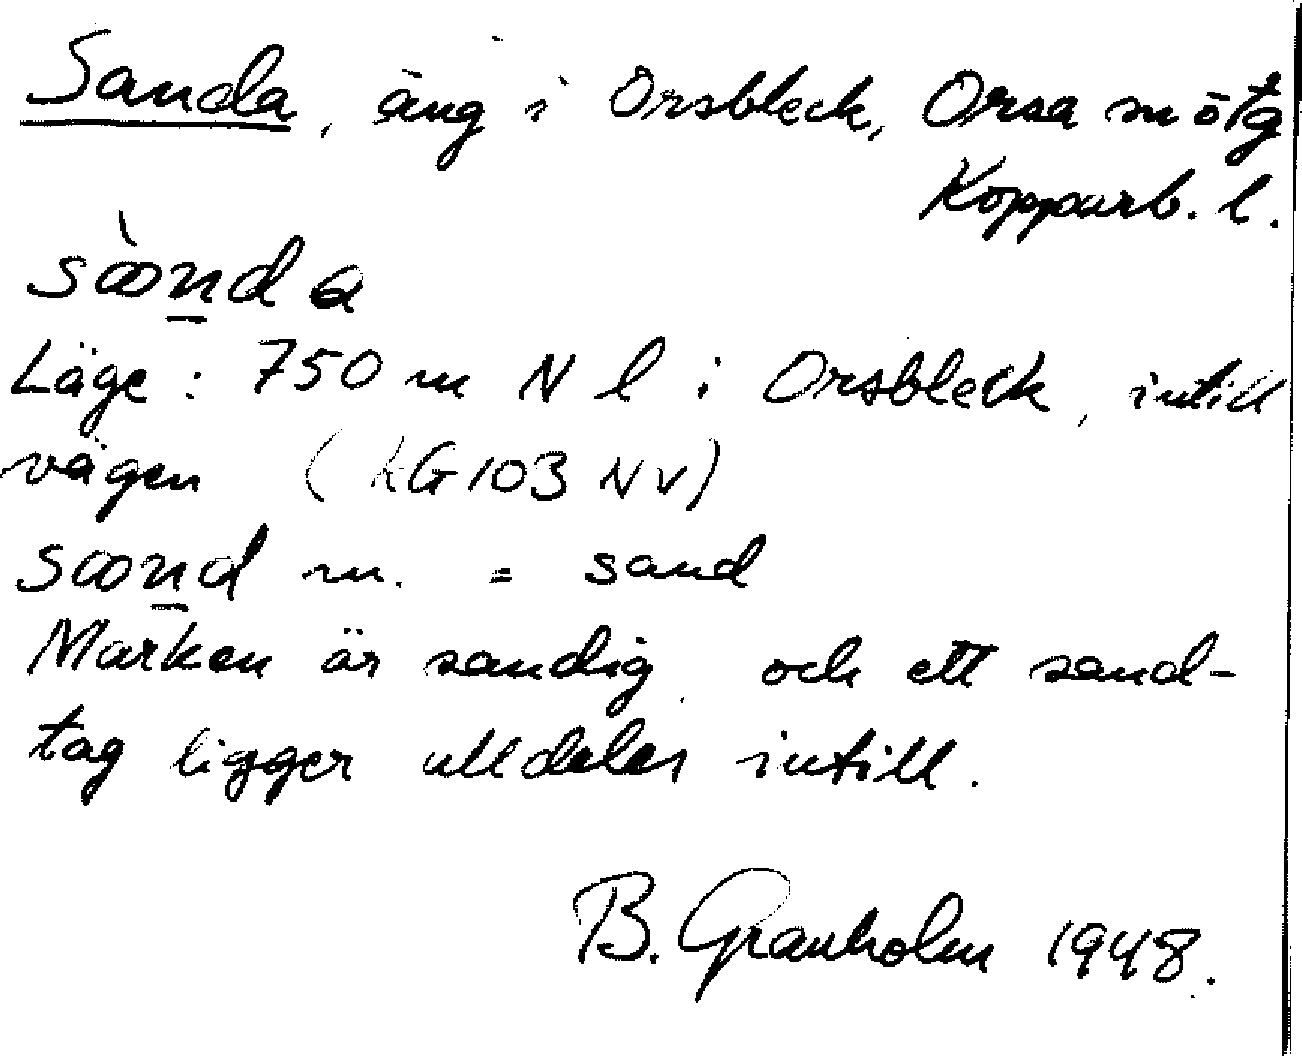 Sanda, äng i Orsbleck, Orsa sn ötg
Kopparb. l.
Läge: 750 m N l i Orsbleck, intill
vägen (LG 103 NV)
m. = sand
Marken är sandig och ett sand-
tag ligger alldeles intill.
B. Granholm 1948.